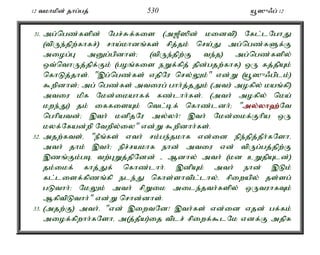 12 வமாமின் தாப்பத் 530 யூஸுஃப் 12
31. அப்பெண்களின் பேச்சுக்களை (அஜீஸின் மனைவி) கேட்டபோது
(விருந்திற்காகச்) சாய்மானங்கள் சித்தம் செய்து அப்பெண்களுக்கு
அழைப்பு அனுப்பினாள்; (விருந்திற்கு வந்த) அப்பெண்களில்
ஒவ்வொருத்திக்கும் (பழங்களை நறுக்கித் தின்பதற்காக) ஒரு கத்தியும்
கொடுத்தாள். "இப்பெண்கள் எதிரே செல்லும்" என்று (யூஸுஃபிடம்)
கூறினாள்; அப் பெண்கள் அவரைப் பார்த்ததும் (அவர் அழகில் மயங்கி)
அவரை மிக மேன்மையாகக் கண்டார்கள். (அவர் அழகில் மெய்
மறந்து) தம் கைகளையும் வெட்டிக் கொண்டனர்; "அல்லாஹ்வே
பெரியவன்; இவர் மனிதரே அல்லர்! இவர் மேன்மைக்குரிய ஒரு
மலக்கேயன்றி வேறில்லை" என்று கூறினார்கள்.
32. அதற்கவள், "நீங்கள் எவர் சம்பந்தமாக என்னை நிந்தித்தீர்களோ,
அவர் தாம் இவர்; நிச்சயமாக நான் அவரை என் விருப்பத்திற்கு
இணங்கும்படி வற்புறுத்தினேன் - ஆனால் அவர் (மன உறுதியுடன்)
தம்மைக் காத்துக் கொண்டார். இனியும் அவர் நான் இடும்
கட்டளைக்கிணங்கி நடந்து கொள்ளாவிட்டால், சிறையில் தள்ளப்
படுவார்; மேலும் அவர் சிறுமை அடைந்தவர்களில் ஒருவராகவும்
ஆகிவிடுவார்" என்று சொன்னாள்.
33. (அதற்கு) அவர், "என் இறைவனே! இவர்கள் என்னை எதன் பக்கம்
அழைக்கிறார்களோ, அ(த்தீய)தை விடச் சிறைக்கூடமே எனக்கு அதிக